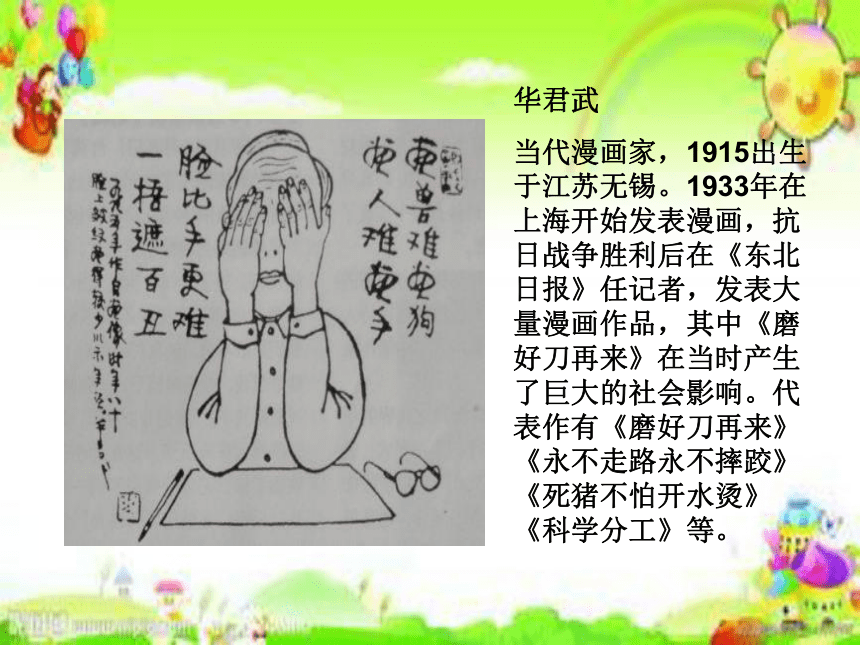 华君武
当代漫画家，1915出生
于江苏无锡。1933年在
上海开始发表漫画，抗
日战争胜利后在《东北
日报》任记者，发表大
量漫画作品，其中《磨
好刀再来》在当时产生
了巨大的社会影响。代
表作有《磨好刀再来》
《永不走路永不摔跤》
《死猪不怕开水烫》
《科学分工》等。
画兽难画狗
画人难画手
脸比手更难
一捂遮百丑
年作自画像时年八十
脸上皱纹画得较少以示年